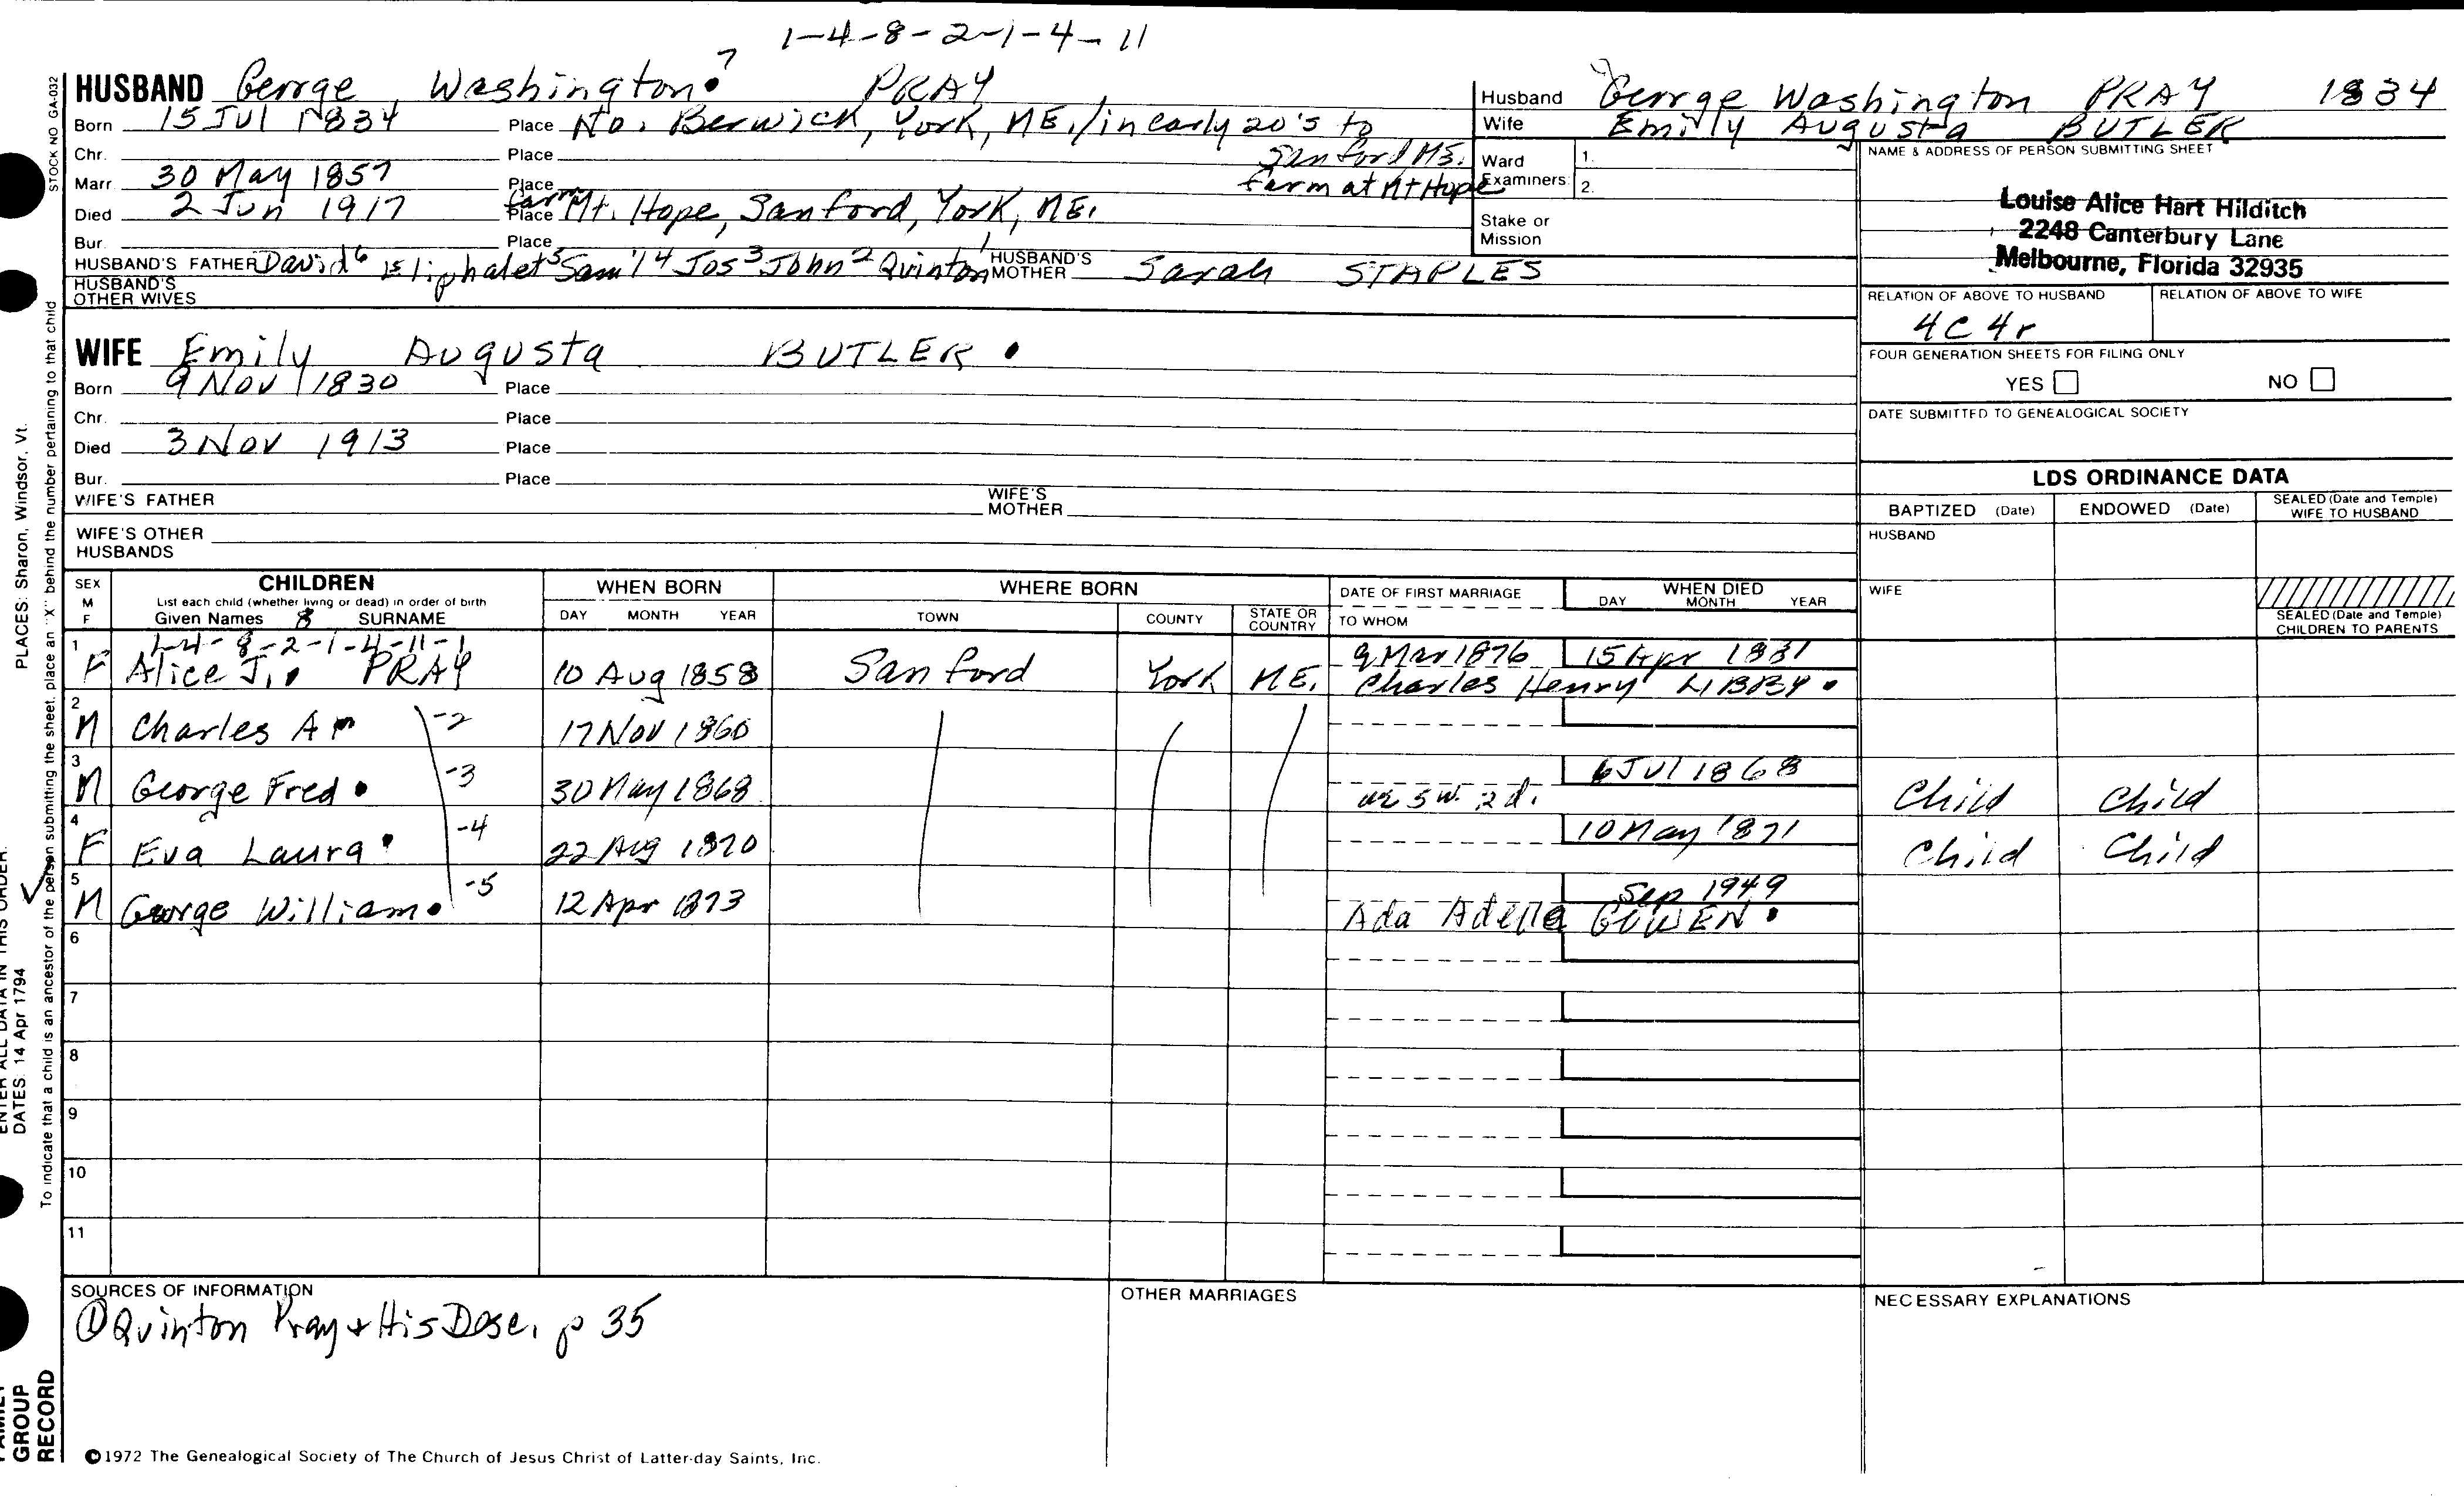 1-4-8-2-1-4-11
HUSBAND George Washington 7 PRAY
Born 15 Jul 1834 Place No. Berwick, York, ME./in early 20's to
Sanford ME.
Chr. Place
farm at Mt Hope
Marr. 30 May 1857 Place
Died 2 Jun 1917 Place farm Mt. Hope, Sanford, York, ME.
Bur. Place
HUSBAND'S FATHER David6 Eliphalet5 Sam'l4 Jos3 John2 Quinton1 HUSBAND'S MOTHER Sarah STAPLES
HUSBAND'S OTHER WIVES
WIFE Emily Augusta BUTLER
Born 9 Nov 1830 Place
Chr. Place
Died 3 Nov 1913 Place
Bur. Place
WIFE'S FATHER WIFE'S MOTHER
WIFE'S OTHER HUSBANDS
Husband George Washington PRAY 1834
Wife Emily Augusta BUTLER
Ward 1.
Examiners: 2.
Stake or
Mission
NAME & ADDRESS OF PERSON SUBMITTING SHEET
Louise Alice Hart Hilditch
2248 Canterbury Lane
Melbourne, Florida 32935
RELATION OF ABOVE TO HUSBAND RELATION OF ABOVE TO WIFE
4C 4r
FOUR GENERATION SHEETS FOR FILING ONLY
YES NO
DATE SUBMITTED TO GENEALOGICAL SOCIETY
LDS ORDINANCE DATA
BAPTIZED (Date) ENDOWED (Date) SEALED (Date and Temple) WIFE TO HUSBAND
HUSBAND
WIFE
SEALED (Date and Temple) CHILDREN TO PARENTS
SEX M F
CHILDREN
List each child (whether living or dead) in order of birth
Given Names 8 SURNAME
WHEN BORN
DAY MONTH YEAR
WHERE BORN
TOWN COUNTY STATE OR COUNTRY
DATE OF FIRST MARRIAGE
TO WHOM
WHEN DIED
DAY MONTH YEAR
1-4-8-2-1-4-11-1
1 F Alice J. PRAY 10 Aug 1858 Sanford York ME. 9 Mar 1876 15 Apr 1881
Charles Henry LIBBY
2 M Charles A -2 17 Nov 1860
3 M George Fred -3 30 May 1868 6 Jul 1868 Child Child
5w. 2d.
4 F Eva Laura -4 22 Aug 1870 10 May 1871 Child Child
5 M George William -5 12 Apr 1873 Sep 1949
Ada Adella GOWEN
6
7
8
9
10
11
SOURCES OF INFORMATION
① Quinton Pray & His Desc. p 35
OTHER MARRIAGES
NECESSARY EXPLANATIONS
©1972 The Genealogical Society of The Church of Jesus Christ of Latter-day Saints, Inc.
STOCK NO GA-032
To indicate that a child is an ancestor of the person submitting the sheet, place an "X" behind the number pertaining to that child
PLACES: Sharon, Windsor, Vt.
ENTER ALL DATA IN THIS ORDER:
DATES: 14 Apr 1794
FAMILY
GROUP
RECORD